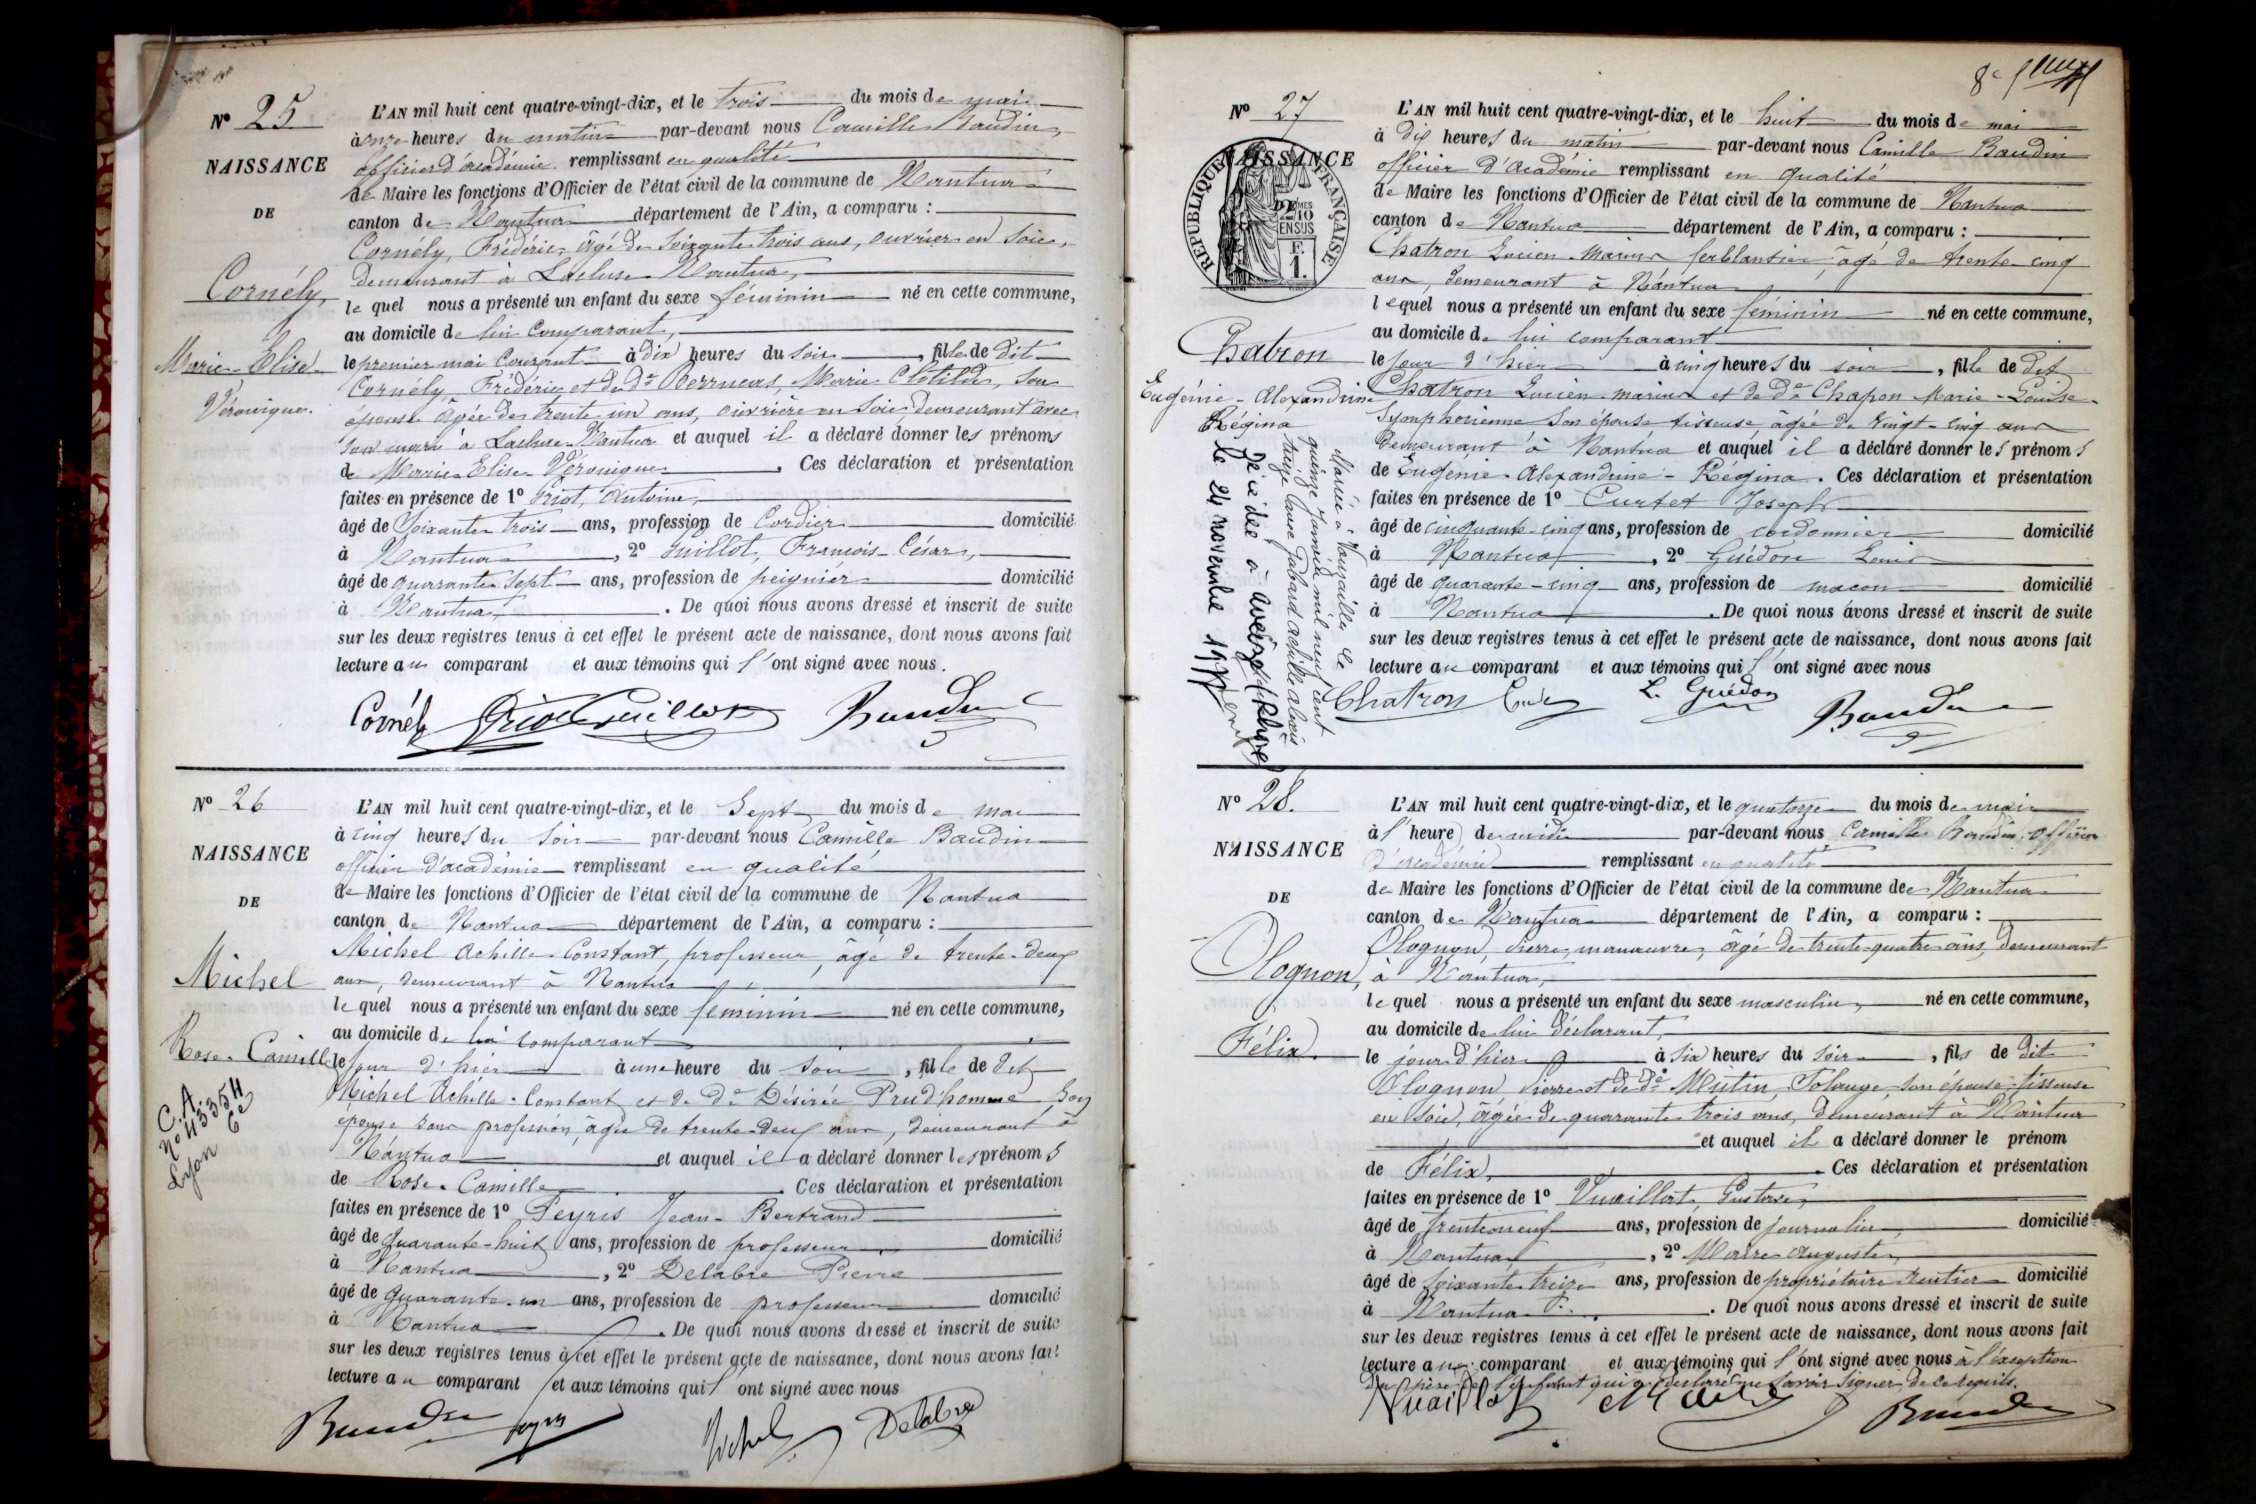 Nº 25
NAISSANCE
DE
Cornély,
Marie-Elise
Véronique.
L'AN mil huit cent quatre-vingt-dix, et le trois du mois de mai
à onze heures du matin par-devant nous Camille Baudin,
officier d'académie remplissant en qualité
de Maire les fonctions d'Officier de l'état civil de la commune de Nantua
canton de Nantua département de l'Ain, a comparu :
Cornély, Frédéric âgé de soixante trois ans, ouvrier en soie,
demeurant à Lacluse Nantua,
le quel nous a présenté un enfant du sexe féminin né en cette commune,
au domicile de lui comparant,
le premier mai courant à dix heures du soir, fille de dit
Cornély, Frédéric et de de Marie Clotilde, son
épouse âgée de trente un ans, ouvrière en soie demeurant avec
son mari à Lacluse Nantua et auquel il a déclaré donner les prénoms
de Marie Elise Véronique. Ces déclaration et présentation
faites en présence de 1º Antoine,
âgé de soixante trois ans, profession de Cordier domicilié
à Nantua, 2º Guillot, François-César,
âgé de quarante sept ans, profession de peignier domicilié
à Nantua. De quoi nous avons dressé et inscrit de suite
sur les deux registres tenus à cet effet le présent acte de naissance, dont nous avons fait
lecture au comparant et aux témoins qui l'ont signé avec nous.
Cornély Guillot Baudin
Nº 26
NAISSANCE
DE
Michel
Rose-Camille
C.A.
Nº 43354
Lyon 6e
L'AN mil huit cent quatre-vingt-dix, et le sept du mois de mai
à cinq heures du soir par-devant nous Camille Baudin
officier d'académie remplissant en qualité
de Maire les fonctions d'Officier de l'état civil de la commune de Nantua
canton de Nantua département de l'Ain, a comparu :
Michel Achille Constant, professeur, âgé de trente-deux
ans, demeurant à Nantua
le quel nous a présenté un enfant du sexe féminin né en cette commune,
au domicile de lui comparant
le jour d'hier à une heure du soir, fille de dit
Michel Achille-Constant et de de Désirée Prud'homme son
épouse sans profession, âgée de trente-deux ans, demeurant à
Nantua et auquel il a déclaré donner les prénoms
de Rose-Camille Ces déclaration et présentation
faites en présence de 1º Peyris Jean-Bertrand
âgé de quarante-huit ans, profession de professeur domicilié
à Nantua, 2º Delabre Pierre
âgé de quarante-un ans, profession de professeur domicilié
à Nantua. De quoi nous avons dressé et inscrit de suite
sur les deux registres tenus à cet effet le présent acte de naissance, dont nous avons fait
lecture au comparant et aux témoins qui l'ont signé avec nous
Baudin Michel Delabre
8e
Nº 27
NAISSANCE
DE
RÉPUBLIQUE FRANÇAISE
2/10
EN SUS
F.
1.
Chatron
Eugénie-Alexandrine
Régina
Mariée à le
quinze janvier mil neuf cent
treize avec Achille Alexis
Décédée à
le 24 novembre
L'AN mil huit cent quatre-vingt-dix, et le huit du mois de mai
à dix heures du matin par-devant nous Camille Baudin
officier d'Académie remplissant en qualité
de Maire les fonctions d'Officier de l'état civil de la commune de Nantua
canton de Nantua département de l'Ain, a comparu :
Chatron Lucien-Marius ferblantier, âgé de trente-cinq
ans, demeurant à Nantua
lequel nous a présenté un enfant du sexe féminin né en cette commune,
au domicile de lui comparant
le jour d'hier à cinq heures du soir, fille de dit
Chatron Lucien-Marius et de de Chapon Marie-Louise-
Symphorienne son épouse tisseuse, âgée de vingt-cinq ans
demeurant à Nantua et auquel il a déclaré donner les prénoms
de Eugénie-Alexandrine-Régina. Ces déclaration et présentation
faites en présence de 1º Curtet Joseph
âgé de cinquante-cinq ans, profession de cordonnier domicilié
à Nantua, 2º Guédon Louis
âgé de quarante-cinq ans, profession de maçon domicilié
à Nantua. De quoi nous avons dressé et inscrit de suite
sur les deux registres tenus à cet effet le présent acte de naissance, dont nous avons fait
lecture au comparant et aux témoins qui l'ont signé avec nous
Chatron L. Guédon Baudin
Nº 28.
NAISSANCE
DE
Olognon,
Félix.
L'AN mil huit cent quatre-vingt-dix, et le quatorze du mois de mai
à l'heure de midi par-devant nous Camille Baudin, officier
d'académie remplissant en qualité
de Maire les fonctions d'Officier de l'état civil de la commune de Nantua
canton de Nantua département de l'Ain, a comparu :
Olognon, Pierre, manœuvre, âgé de trente-quatre ans, demeurant
à Nantua,
le quel nous a présenté un enfant du sexe masculin, né en cette commune,
au domicile de lui déclarant,
le jour d'hier à six heures du soir, fils de dit
Olognon Pierre et de de Mutin, Solange, son épouse tisseuse
en soie, âgée de quarante trois ans, demeurant à Nantua
et auquel il a déclaré donner le prénom
de Félix. Ces déclaration et présentation
faites en présence de 1º Vuaillat, Gustave,
âgé de trente neuf ans, profession de journalier domicilié
à Nantua, 2º Auguste,
âgé de soixante treize ans, profession de propriétaire rentier domicilié
à Nantua. De quoi nous avons dressé et inscrit de suite
sur les deux registres tenus à cet effet le présent acte de naissance, dont nous avons fait
lecture au comparant et aux témoins qui l'ont signé avec nous à l'exception
du père de l'enfant qui a déclaré ne savoir signer de ce requis.
Vuaillat Baudin